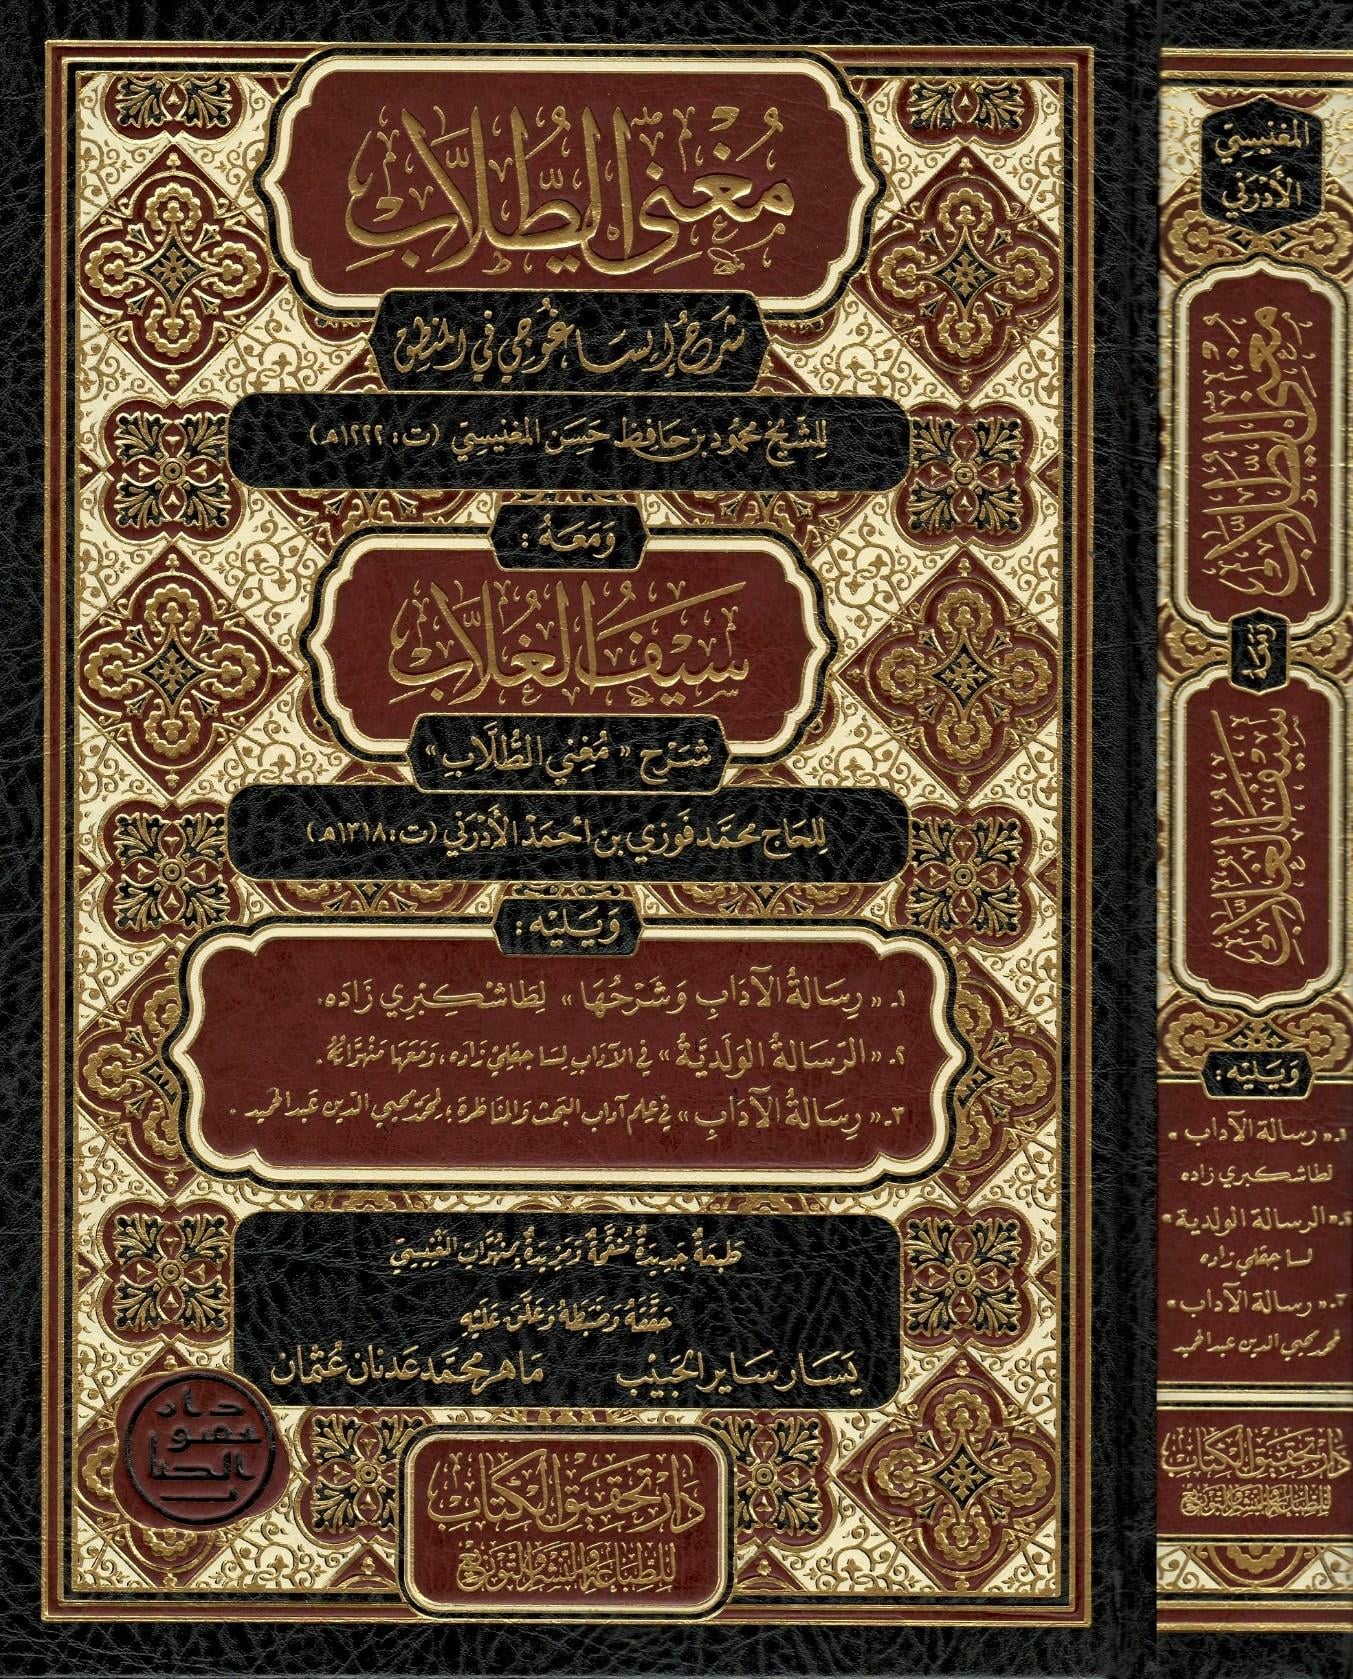 مُغْنِي الطُّلَّابِ
شَرْحُ إِيسَاغُوجِي فِي المَنْطِقِ
لِلشَّيْخِ مَحْمُودِ بْنِ حَافِظ حَسَن المَغْنِيسِيّ (ت: ١٢٢٢هـ)
وَمَعَهُ :
سَيْفُ الغُلَّابِ
شَرْح « مُغْنِي الطُّلَّابِ »
لِلحَاجّ مُحَمَّد فَوْزِي بْنِ أَحْمَدَ الأَدْرَنِيّ (ت: ١٣١٨هـ)
وَيَلِيْه :
١ـ « رِسَالَةُ الآدَابِ وَشَرْحُهَا » لِطَاشْكُبْرِي زَادَه.
٢ـ « الرِّسَالَةُ الوَلَدِيَّةُ » فِي الآدَابِ لِسَاجَقْلِي زَادَه، وَمَعَهَا مِنْهُوَّاتُهُ.
٣ـ « رِسَالَةُ الآدَابِ » فِي عِلْمِ آدَابِ البَحْثِ وَالمُنَاظَرَةِ، لِمُحَمَّد مُحْيِي الدِّين عَبْد الحَمِيد .
طَبْعَةٌ جَدِيدَةٌ مُنَقَّحَةٌ وَمَزِيدَةٌ بِمِنْهُوَّات المَغْنِيسِيّ
حَقَّقَهُ وَضَبَطَهُ وَعَلَّقَ عَلَيْهِ
يَسَار سَايِر الحَبِيْب
مَاهِر مُحَمَّد عَدْنَان عُثْمَان
دار تحقيق الكتاب
للطباعة والنشر والتوزيع
المغنيسيّ
الأَدْرَنيّ
مُغْنِي الطُّلَّابِ
وَمَعَهُ
سَيْفُ الغُلَّابِ
وَيَليْه :
١ـ « رسالة الآداب »
لطاشكبري زاده
٢ـ « الرسالة الولدية »
لساجقلي زاده
٣ـ « رسالة الآداب »
محمد محيي الدين عبد الحميد
دار تحقيق الكتاب
للطباعة والنشر والتوزيع